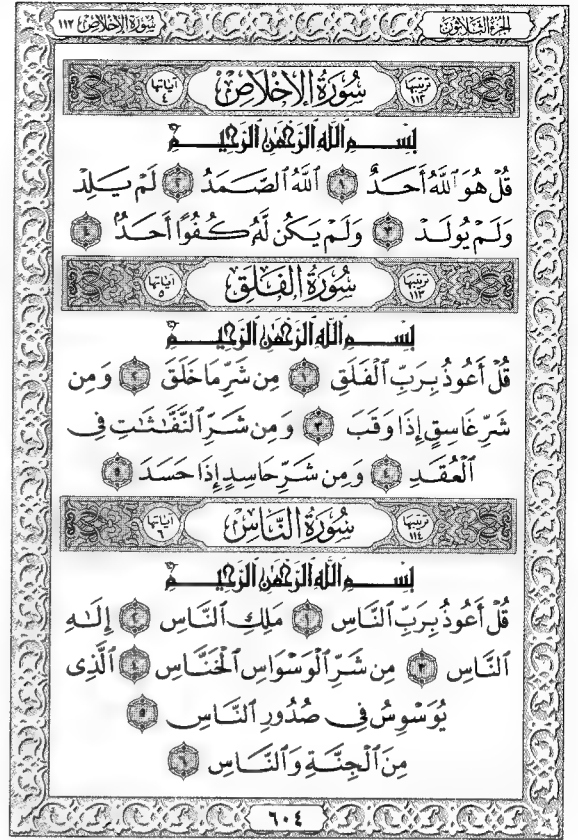 الجزء الثلاثون سورة الإخلاص ١١٢
ترتيبها ١١٢ سُورَةُ الإِخْلَاصِ آياتها ٤
بِسْمِ اللَّهِ الرَّحْمَٰنِ الرَّحِيمِ
قُلْ هُوَ ٱللَّهُ أَحَدٌ ١ ٱللَّهُ ٱلصَّمَدُ ٢ لَمْ يَلِدْ
وَلَمْ يُولَدْ ٣ وَلَمْ يَكُن لَّهُۥ كُفُوًا أَحَدٌۢ ٤
ترتيبها ١١٣ سُورَةُ الفَلَقِ آياتها ٥
بِسْمِ اللَّهِ الرَّحْمَٰنِ الرَّحِيمِ
قُلْ أَعُوذُ بِرَبِّ ٱلْفَلَقِ ١ مِن شَرِّ مَا خَلَقَ ٢ وَمِن
شَرِّ غَاسِقٍ إِذَا وَقَبَ ٣ وَمِن شَرِّ ٱلنَّفَّٰثَٰتِ فِى
ٱلْعُقَدِ ٤ وَمِن شَرِّ حَاسِدٍ إِذَا حَسَدَ ٥
ترتيبها ١١٤ سُورَةُ النَّاسِ آياتها ٦
بِسْمِ اللَّهِ الرَّحْمَٰنِ الرَّحِيمِ
قُلْ أَعُوذُ بِرَبِّ ٱلنَّاسِ ١ مَلِكِ ٱلنَّاسِ ٢ إِلَٰهِ
ٱلنَّاسِ ٣ مِن شَرِّ ٱلْوَسْوَاسِ ٱلْخَنَّاسِ ٤ ٱلَّذِى
يُوَسْوِسُ فِى صُدُورِ ٱلنَّاسِ ٥
مِنَ ٱلْجِنَّةِ وَٱلنَّاسِ ٦
٦٠٤